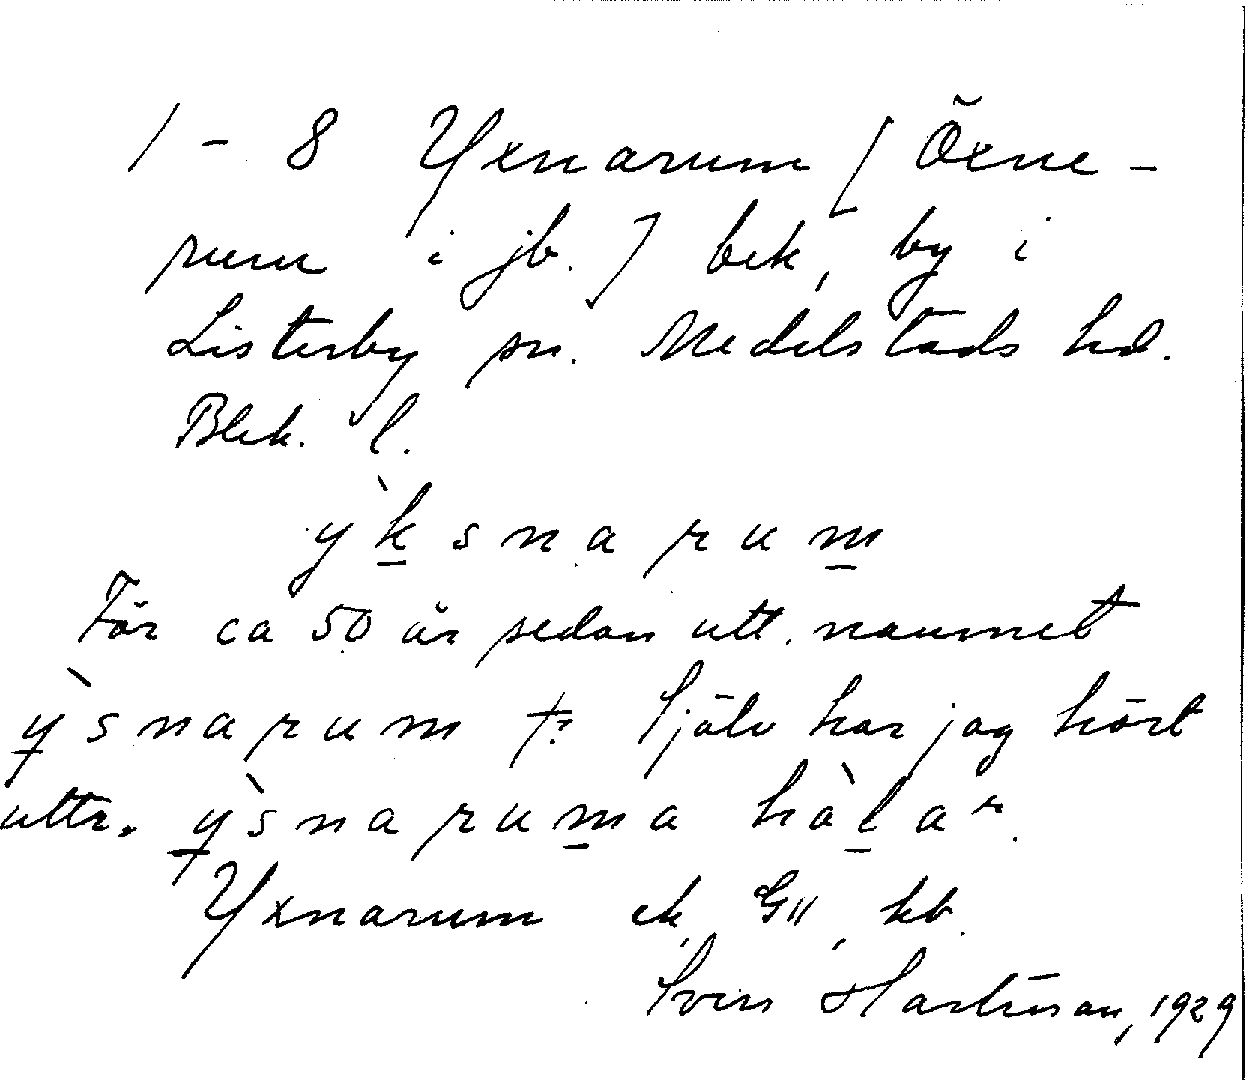 1 - 8 Yxnarum [Öxne-
rum i jb.] bek, by i
Listerby sn. Medelstads hd.
Blek. l.
ỳksnarum
För ca 50 år sedan utt. namnet
ỳsnarum †? Själv har jag hört
uttr. ỳsnaruma hàlar.
Yxnarum ek, GII, kb.
Sven Hartman, 1929